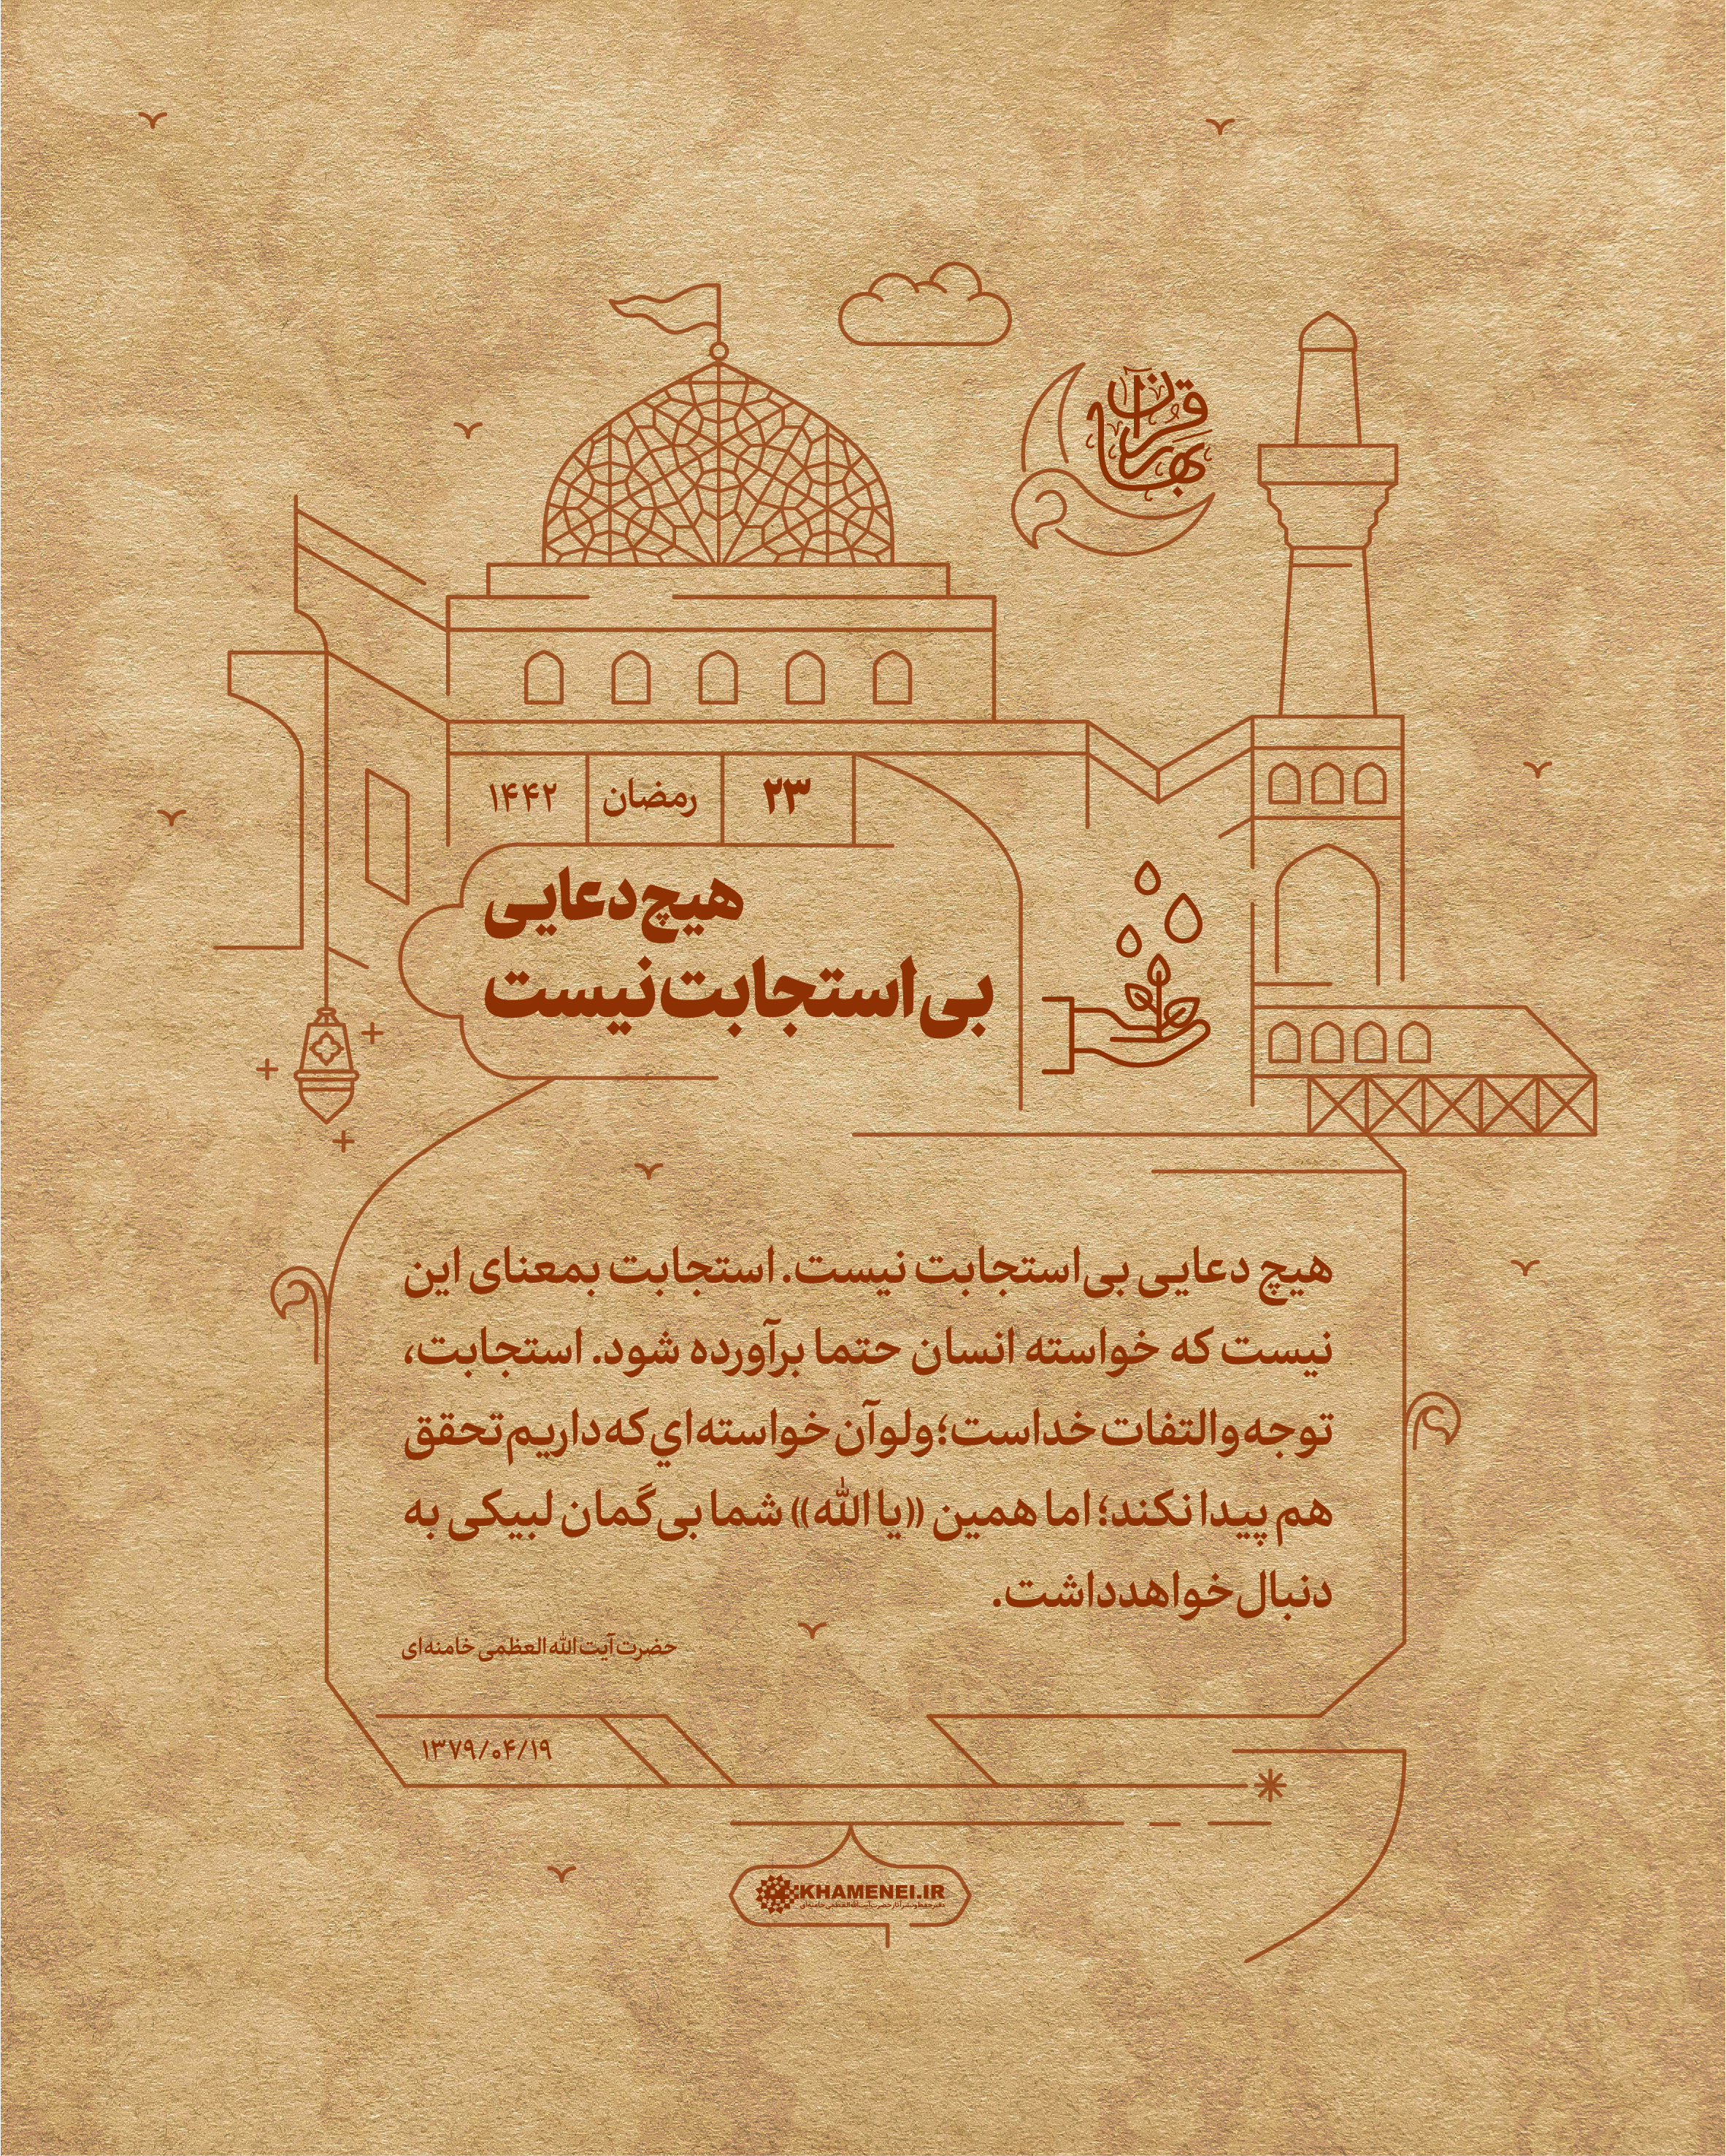 بهار قرآن
۲۳ رمضان ۱۴۴۲
هیچ دعایی
بی‌استجابت نیست
هیچ دعایی بی‌استجابت نیست. استجابت بمعنای این
نیست که خواسته انسان حتما برآورده شود. استجابت،
توجه و التفات خداست؛ ولو آن خواسته‌اي که داریم تحقق
هم پیدا نکند؛ اما همین «یا الله» شما بی‌گمان لبیکی به
دنبال خواهد داشت.
حضرت آیت الله العظمی خامنه‌ای
۱۳۷۹/۰۴/۱۹
KHAMENEI.IR
دفتر حفظ و نشر آثار حضرت آیت‌الله‌العظمی خامنه‌ای